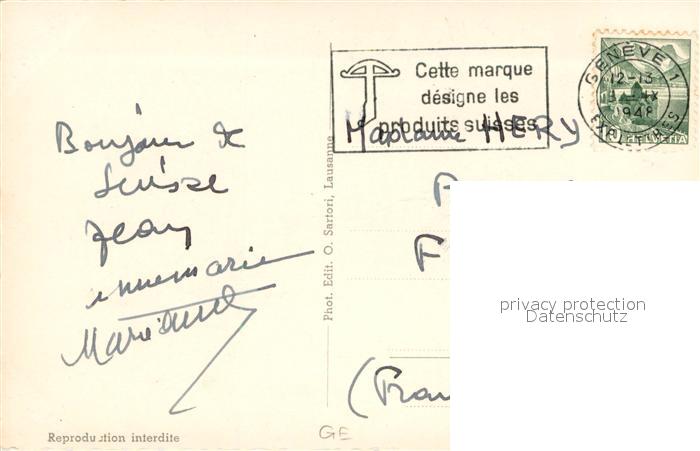 Bonjour de
Suisse
Jean
Annemarie
Marianne
Reproduction interdite
Phot. Edit. O. Sartori, Lausanne
Cette marque
désigne les
produits suisses
GENÈVE 1
12-13
IX
1948
HELVETIA
Madame HERY
F
(Fran
GE
privacy protection
Datenschutz